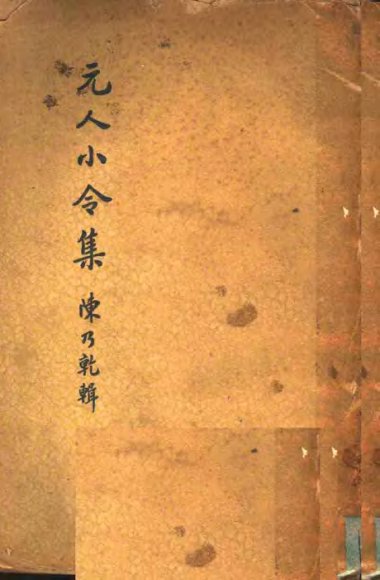 元人小令集
陳乃乾輯